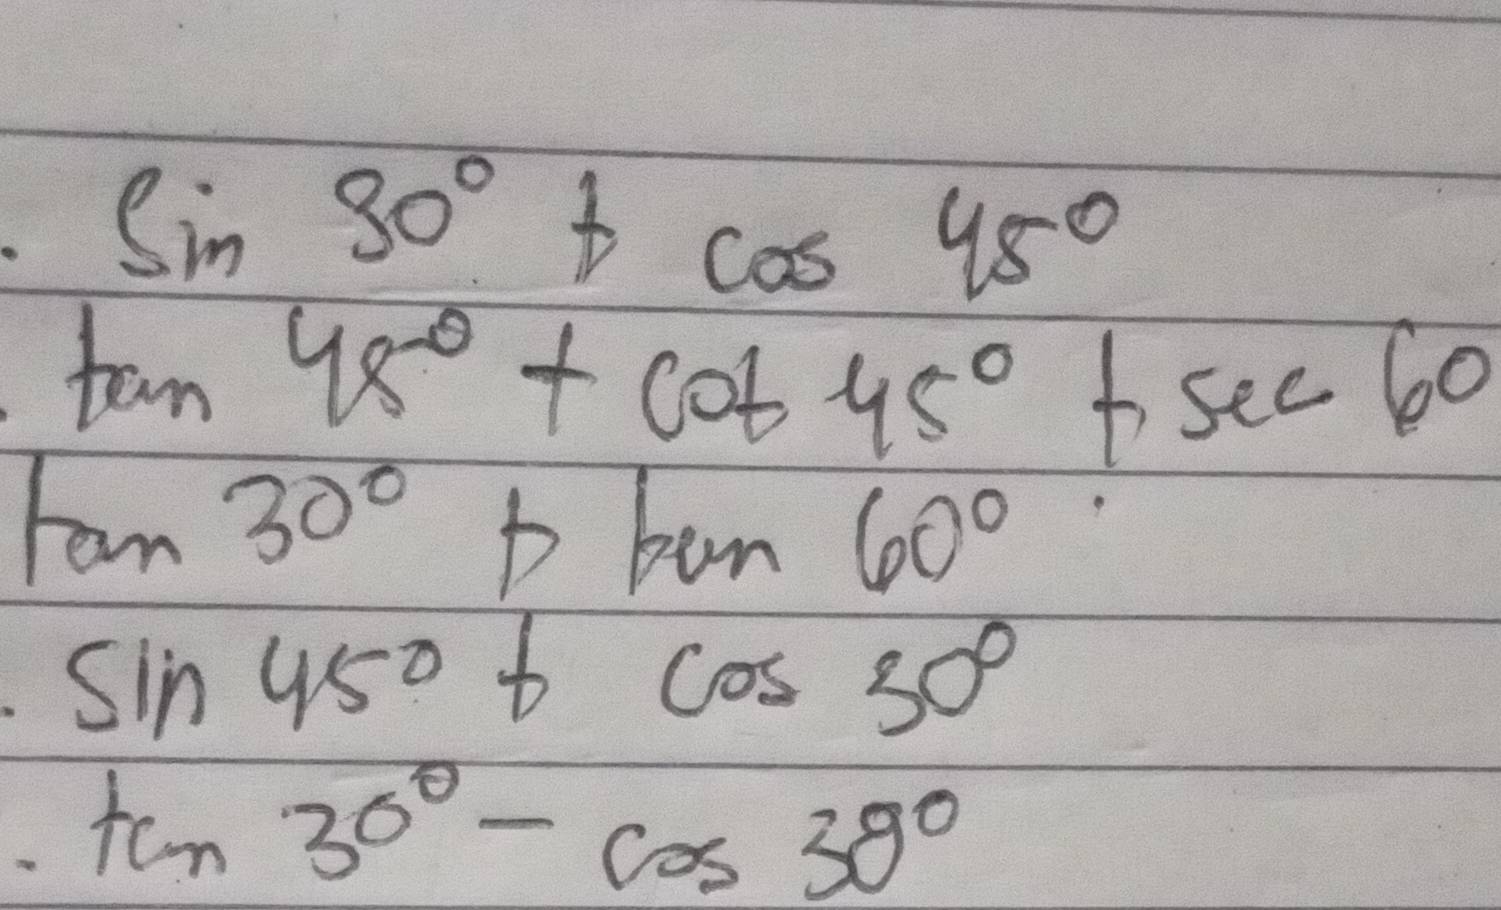 . Sin 30° + cos 45°
. tan 45° + cot 45° + sec 60
tan 30° + tan 60°
. Sin 45° + cos 30°
. tan 30° - cos 30°